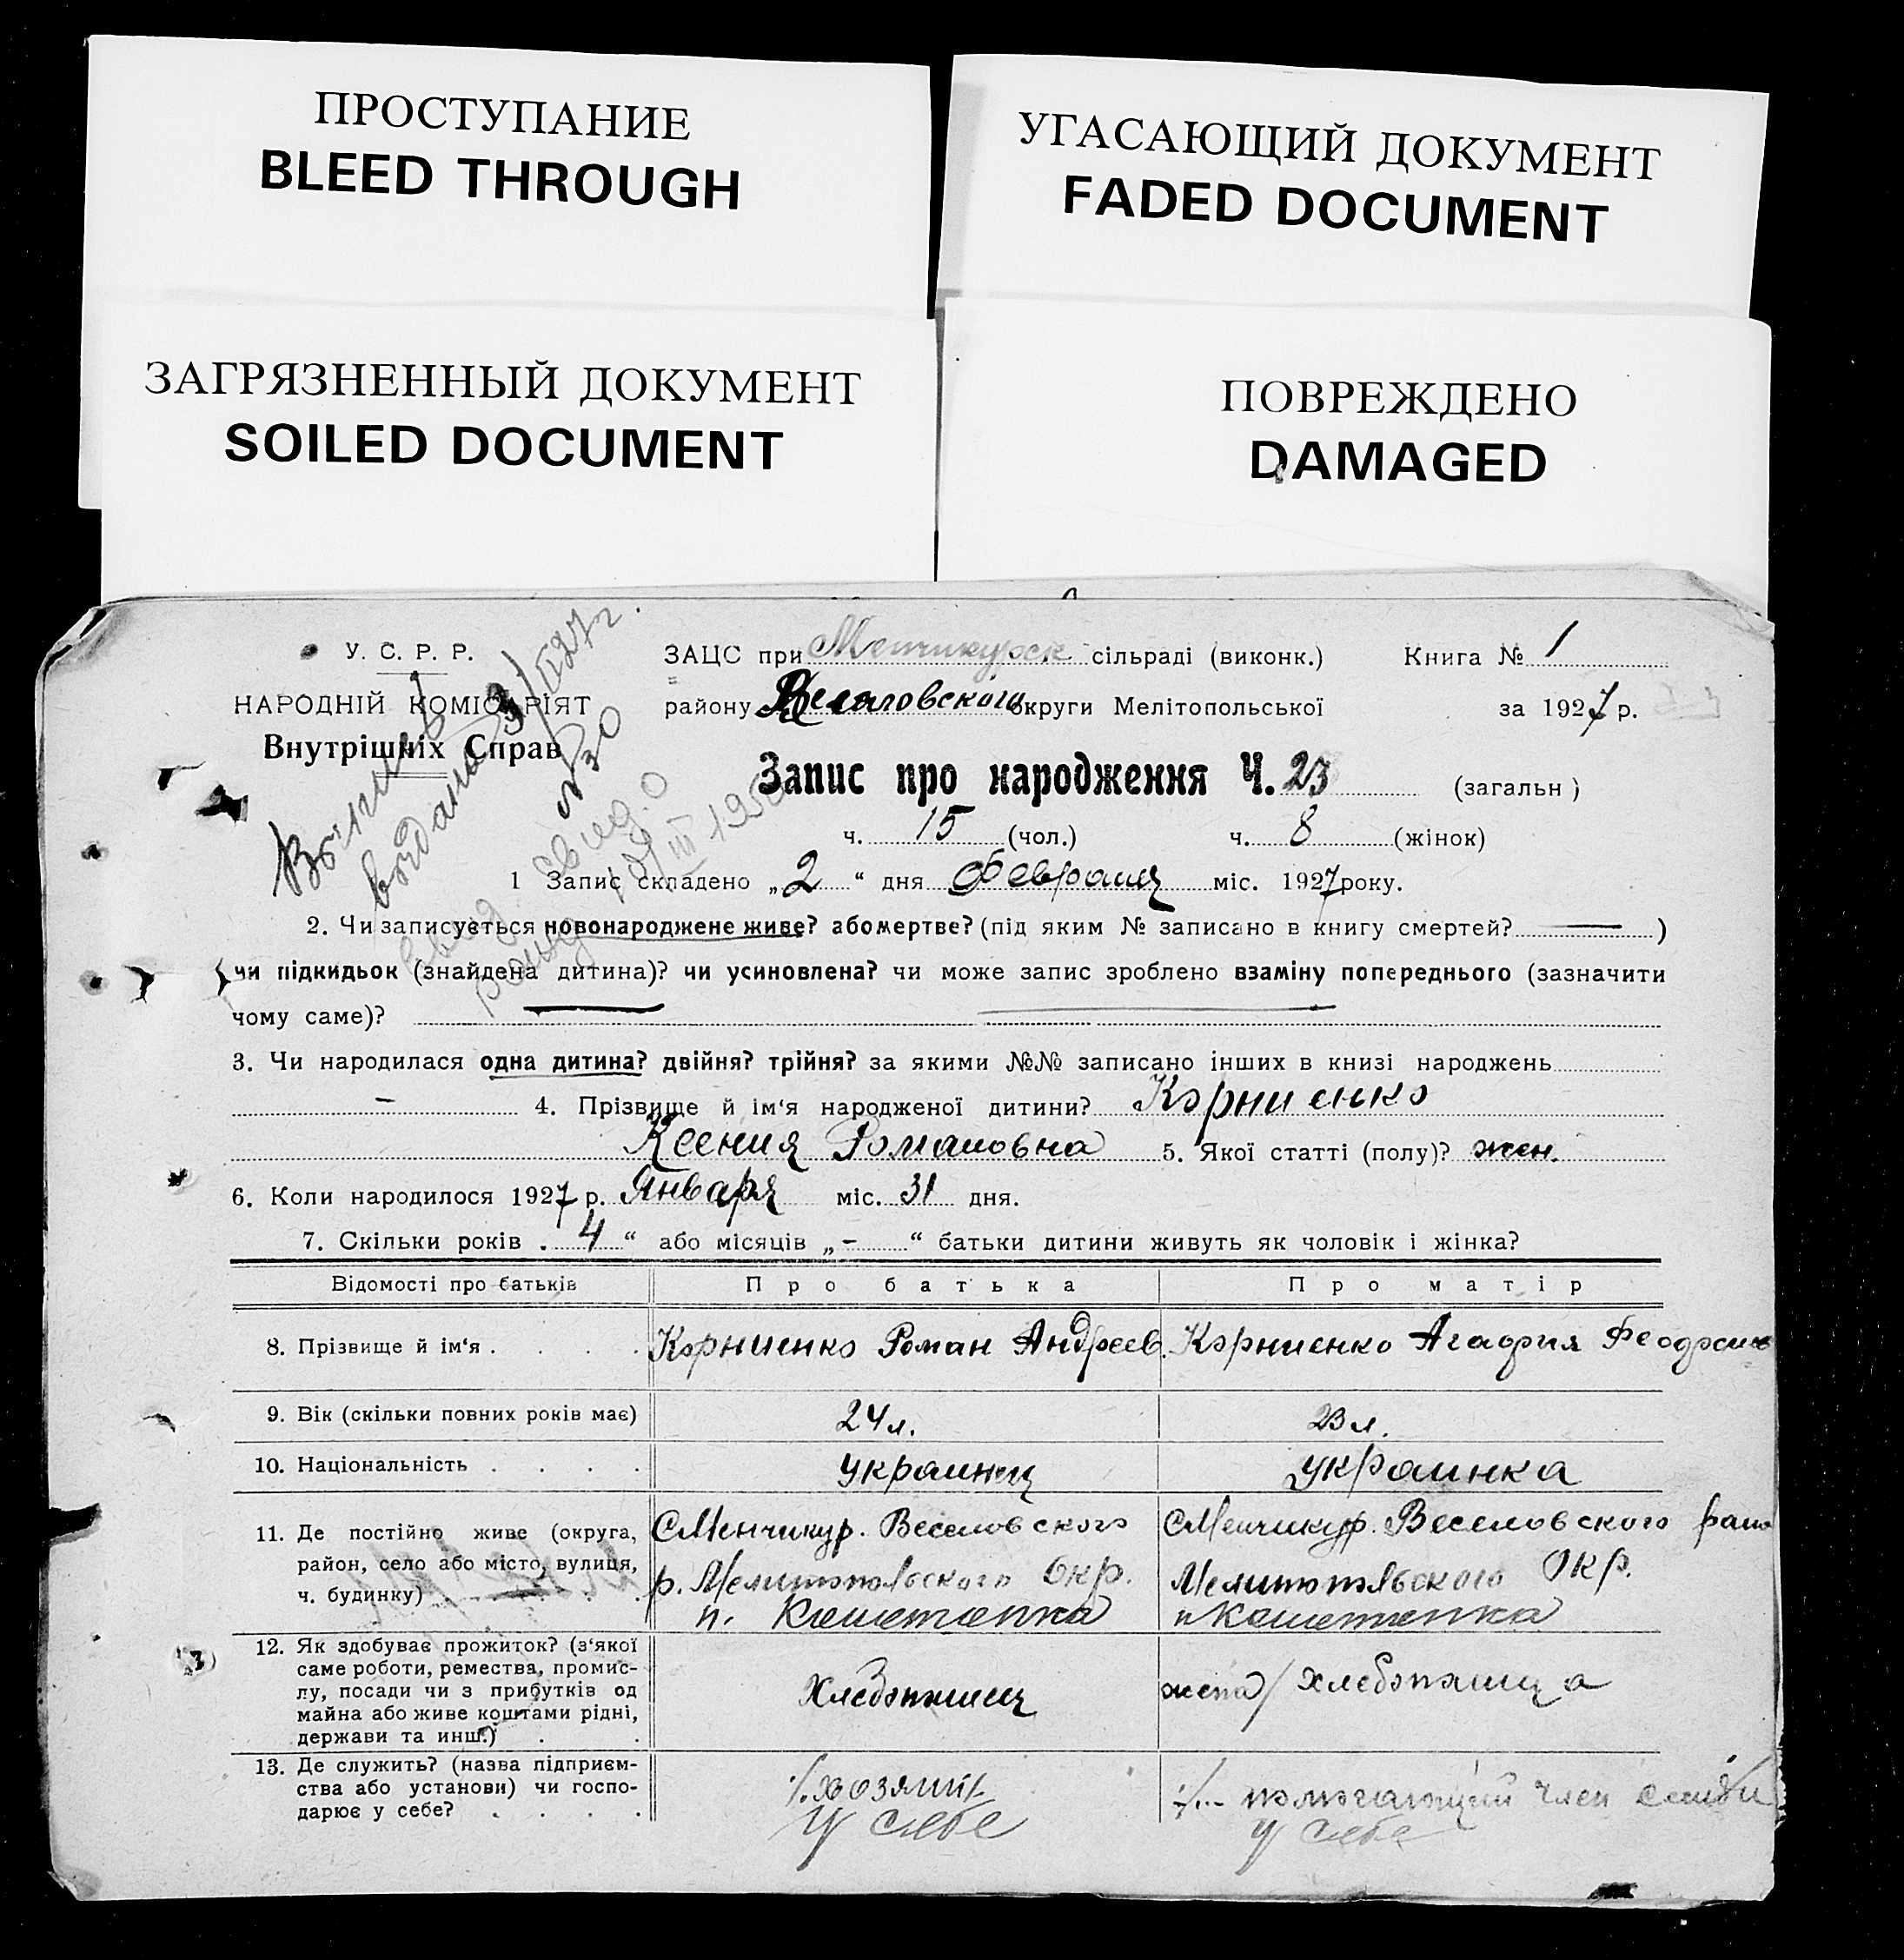 ПРОСТУПАНИЕ
BLEED THROUGH
УГАСАЮЩИЙ ДОКУМЕНТ
FADED DOCUMENT
ЗАГРЯЗНЕННЫЙ ДОКУМЕНТ
SOILED DOCUMENT
ПОВРЕЖДЕНО
DAMAGED
У. С. Р. Р.
НАРОДНІЙ КОМІСАРІЯТ
Внутрішніх Справ
ЗАЦС при Менчикурск сільраді (виконк.) Книга № 1
району Веселовского округи Мелітопольської за 1927 р.
Запис про народження Ч. 23 (загальн)
ч. 15 (чол.) ч. 8 (жінок)
1 Запис складено „2“ дня Февраля міс. 1927 року.
2. Чи записується новонароджене живе? або мертве? (під яким № записано в книгу смертей? — )
чи підкидьок (знайдена дитина)? чи усиновлена? чи може запис зроблено взаміну попереднього (зазначити
чому саме)? — —
3. Чи народилася одна дитина? двійня? трійня? за якими №№ записано інших в книзі народжень
– 4. Прізвище й ім‘я народженої дитини? Корниенко
Ксения Романовна 5. Якої статті (полу)? жен.
6. Коли народилося 1927 р. Января міс. 31 дня.
7. Скільки років . 4 “ або місяців „ – “ батьки дитини живуть як чоловік і жінка?
Відомості про батьків Про батька Про матір
8. Прізвище й ім‘я . . . . Корниенко Роман Андреев. Корниенко Агафия
9. Вік (скільки повних років має) 24 л. 23 л.
10. Національність . . . . украинец украинка
11. Де постійно живе (округа, С Менчикур. Веселовского С Менчикур. Веселовского
район, село або місто, вулиця, р. Мелитопольского Окр. Мелитопольского Окр.
ч. будинку) . . . . п. п
12. Як здобуває прожиток? (з‘якої
саме роботи, ремества, промис-
лу, посади чи з прибутків од Хлебопашец жена/ хлебопашца
майна або живе коштами рідні,
держави та инш.) . .
13. Де служить? (назва підприєм-
ства або установи) чи госпо- хозяин помогающий член семьи
дарює у себе? . . . . У себе у себе